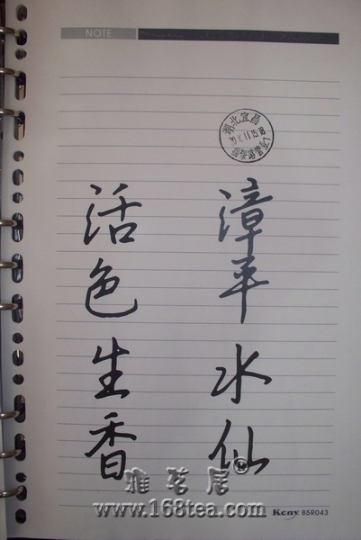 NOTE
湖北宜昌
漳平水仙
活色生香
雅茗居®
www.168tea.com
Kcny BSR043